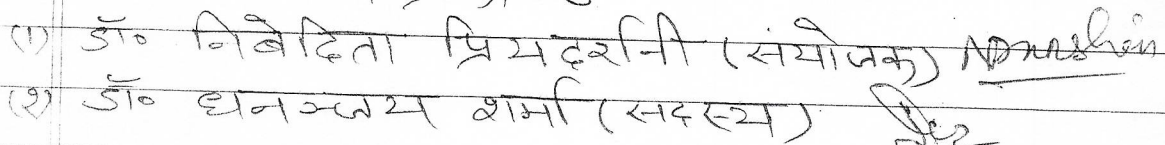 (1) डॉ० निबेदिता प्रियदर्शनी (संयोजक)
(2) डॉ० धनञ्जय शर्मा (सदस्य)